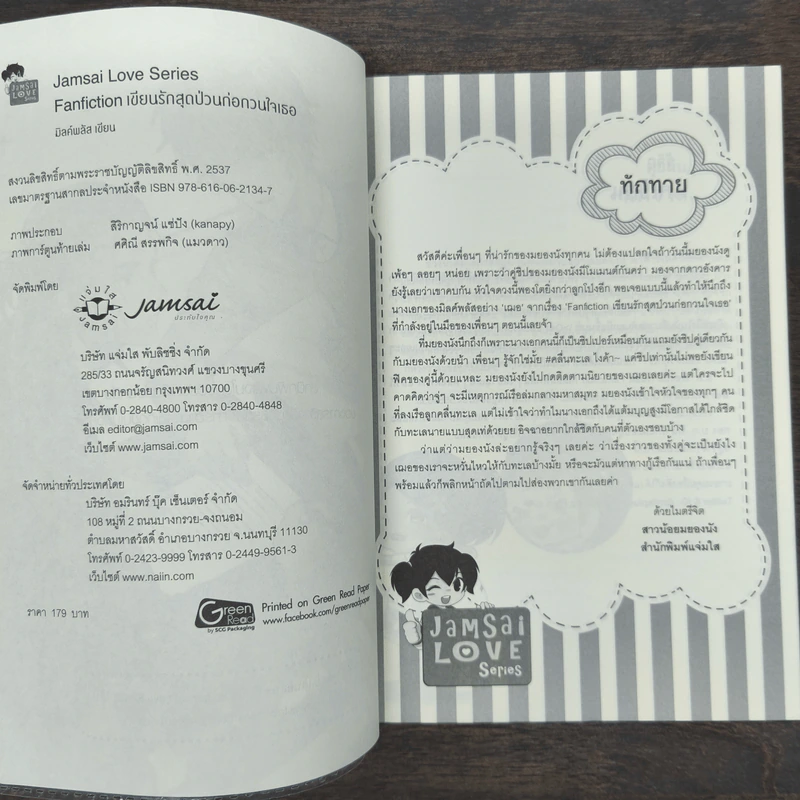 JAMSAI
LOVE
Series
Jamsai Love Series
Fanfiction เขียนรักสุดป่วนก่อกวนใจเธอ
มิลค์พลัส เขียน
สงวนลิขสิทธิ์ตามพระราชบัญญัติลิขสิทธิ์ พ.ศ. 2537
เลขมาตรฐานสากลประจำหนังสือ ISBN 978-616-06-2134-7
ภาพประกอบ สิริกาญจน์ แซ่ปัง (kanapy)
ภาพการ์ตูนท้ายเล่ม ศศิณี สรรพกิจ (แมวดาว)
จัดพิมพ์โดย
แจ่มใส
Jamsai
Jamsai
ประทับใจคุณ
บริษัท แจ่มใส พับลิชชิ่ง จำกัด
285/33 ถนนจรัญสนิทวงศ์ แขวงบางขุนศรี
เขตบางกอกน้อย กรุงเทพฯ 10700
โทรศัพท์ 0-2840-4800 โทรสาร 0-2840-4848
อีเมล editor@jamsai.com
เว็บไซต์ www.jamsai.com
จัดจำหน่ายทั่วประเทศโดย
บริษัท อมรินทร์ บุ๊ค เซ็นเตอร์ จำกัด
108 หมู่ที่ 2 ถนนบางกรวย-จงถนอม
ตำบลมหาสวัสดิ์ อำเภอบางกรวย จ.นนทบุรี 11130
โทรศัพท์ 0-2423-9999 โทรสาร 0-2449-9561-3
เว็บไซต์ www.naiin.com
ราคา 179 บาท
Green
Read
by SCG Packaging
Printed on Green Read Paper
www.facebook.com/greenreadpaper
ทักทาย
สวัสดีค่ะเพื่อนๆ ที่น่ารักของมยองนังทุกคน ไม่ต้องแปลกใจถ้าวันนี้มยองนังดู
เพ้อๆ ลอยๆ หน่อย เพราะว่าคู่ชิปของมยองนังมีโมเมนต์กันคร่า มองจากดาวอังคาร
ยังรู้เลยว่าเขาคบกัน หัวใจดวงนี้พองโตยิ่งกว่าลูกโป่งอีก พอเจอแบบนี้แล้วทำให้นึกถึง
นางเอกของมิลค์พลัสอย่าง 'เฌอ' จากเรื่อง 'Fanfiction เขียนรักสุดป่วนก่อกวนใจเธอ'
ที่กำลังอยู่ในมือของเพื่อนๆ ตอนนี้เลยจ้า
ที่มยองนังนึกถึงก็เพราะนางเอกคนนี้ก็เป็นชิปเปอร์เหมือนกัน แถมยังชิปคู่เดียวกัน
กับมยองนังด้วยน้า เพื่อนๆ รู้จักใช่มั้ย #คลื่นทะเล ไงค้า~ แค่ชิปเท่านั้นไม่พอยังเขียน
ฟิคของคู่นี้ด้วยแหละ มยองนังยังไปกดติดตามนิยายของเฌอเลยค่ะ แต่ใครจะไป
คาดคิดว่าจู่ๆ จะมีเหตุการณ์เรือล่มกลางมหาสมุทร มยองนังเข้าใจหัวใจของทุกๆ คน
ที่ลงเรือลูกคลื่นทะเล แต่ไม่เข้าใจว่าทำไมนางเอกถึงได้แต้มบุญสูงมีโอกาสได้ใกล้ชิด
กับทะเลนายแบบสุดเท่ด้วยยย อิจฉาอยากใกล้ชิดกับคนที่ตัวเองชอบบ้าง
ว่าแต่ว่ามยองนังล่ะอยากรู้จริงๆ เลยค่ะ ว่าเรื่องราวของทั้งคู่จะเป็นยังไง
เฌอของเราจะหวั่นไหวให้กับทะเลบ้างมั้ย หรือจะมัวแต่หาทางกู้เรือกันแน่ ถ้าเพื่อนๆ
พร้อมแล้วก็พลิกหน้าถัดไปตามไปส่องพวกเขากันเลยค่า
ด้วยไมตรีจิต
สาวน้อยมยองนัง
สำนักพิมพ์แจ่มใส
JAMSAI
LOVE
Series